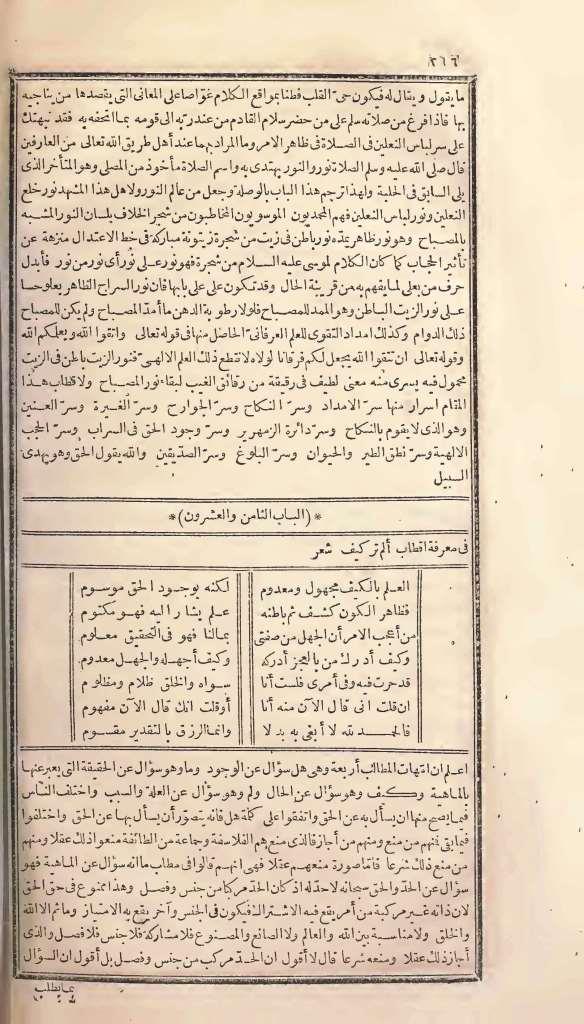 ٢١٦
ما يقول ويقال له فيكون حىّ القلب فطنا بمواقع الكلام غوّاصا على المعانى التى يقصدها من يناجيه
بها فاذا فرغ من صلاته سلم على من حضر سلام القادم من عند ربه الى قومه بما اتحفه به فقد نبهتك
على سر لباس النعلين فى الصلاة فى ظاهر الامر وما المراد بهما عند أهل طريق الله تعالى من العارفين
قال صلى الله عليه وسلم الصلاة نور والنور يهتدى به واسم الصلاة مأخوذ من المصلى وهو المتأخر الذى
يلى السابق فى الحلبة ولهذا ترجم هذا الباب بالوصلة وجعل من عالم النور ولاهل هذا المشهد نور خلع
النعلين ونور لباس النعلين فهم المحمديون الموسويون المخاطبون من شجر الخلاف بلسان النور المشبه
بالمصباح وهو نور ظاهر يمدّه نور باطن فى زيت من شجرة زيتونة مباركة فى خط الاعتدال منزهة عن
تأثير الحجاب كما كان الكلام لموسى عليه السلام من شجرة فهو نور على نور أى نور من نور فأبدل
حرف من بعلى لما يفهم به من قرينة الحال وقد تكون على على بابها فان نور السراج الظاهر يعلو حسا
على نور الزيت الباطن وهو الممد للمصباح فلولا رطوبة الدهن ما أمدّ المصباح ولم يكن للمصباح
ذلك الدوام وكذلك امداد التقوى للعلم العرفانىّ الحاصل منها فى قوله تعالى واتقوا الله ويعلمكم الله
وقوله تعالى ان تتقوا الله يجعل لكم فرقانا لولاه لا تقطع ذلك العلم الالهىّ فنور الزيت باطن فى الزيت
محمول فيه يسرى منه معنى لطيف فى رقيقة من رقائق الغيب لبقاء نور المصباح ولاقطاب هذا
المقام اسرار منها سرّ الامداد وسرّ النكاح وسرّ الجوارح وسرّ الغيرة وسرّ العنين
وهو الذى لا يقوم بالنكاح وسرّ دائرة الزمهرير وسرّ وجود الحق فى السراب وسرّ الحجب
الالهية وسرّ نطق الطير والحيوان وسرّ البلوغ وسرّ الصدّيقين والله يقول الحق وهو يهدى
السبيل
*(الباب الثامن والعشرون)*
فى معرفة اقطاب ألم تر كيف شعر
العلم بالكيف مجهول ومعدوم لكنه بوجود الحق موسوم
فظاهر الكون كشف ثم باطنه علم يشار اليه فهو مكتوم
من أعجب الامر أن الجهل من صفتى بمالنا فهو فى التحقيق معلوم
وكيف أدرك من بالعجز أدركه وكيف أجهله والجهل معدوم
قد حرت فيه وفى أمرى فلست أنا سواه والخلق ظلام ومظلوم
ان قلت انى قال الآن منه أنا أو قلت انك قال الآن مفهوم
فالحمد لله لا أبغى به بدلا وانما الرزق بالتقدير مقسوم
اعلم ان امّهات المطالب أربعة وهى هل سؤال عن الوجود وما وهو سؤال عن الحقيقة التى يعبر عنها
بالماهية وكيف وهو سؤال عن الحال ولم وهو سؤال عن العلة والسبب واختلف النّاس
فيما يصح منها ان يسأل به عن الحق واتفقوا على كلمة هل فانه يتصوّر أن يسأل بها عن الحق واختلفوا
فيما بقى فمنهم من منع ومنهم من أجاز فالذى منع هم الفلاسفة وجماعة من الطائفة منعوا ذلك عقلا ومنهم
من منع ذلك شرعا فامّا صورة منعهم عقلا فهى انهم قالوا فى مطلب ما انه سؤال عن الماهية فهو
سؤال عن الحدّ والحق سبحانه لا حدّ له اذ كان الحدّ مركبا من جنس وفصل وهذا ممنوع فى حق الحق
لان ذاته غير مركبة من أمر يقع فيه الاشتراك فيكون فى الجنس وآخر يقع به الامتياز وما ثم الا الله
والخلق ولا مناسبة بين الله والعالم ولا الصانع والمصنوع فلا مشاركة فلا جنس فلا فصل والذى
أجاز ذلك عقلا ومنعه شرعا قال لا أقول ان الحدّ مركب من جنس وفصل بل أقول ان السؤال
بما يطلب